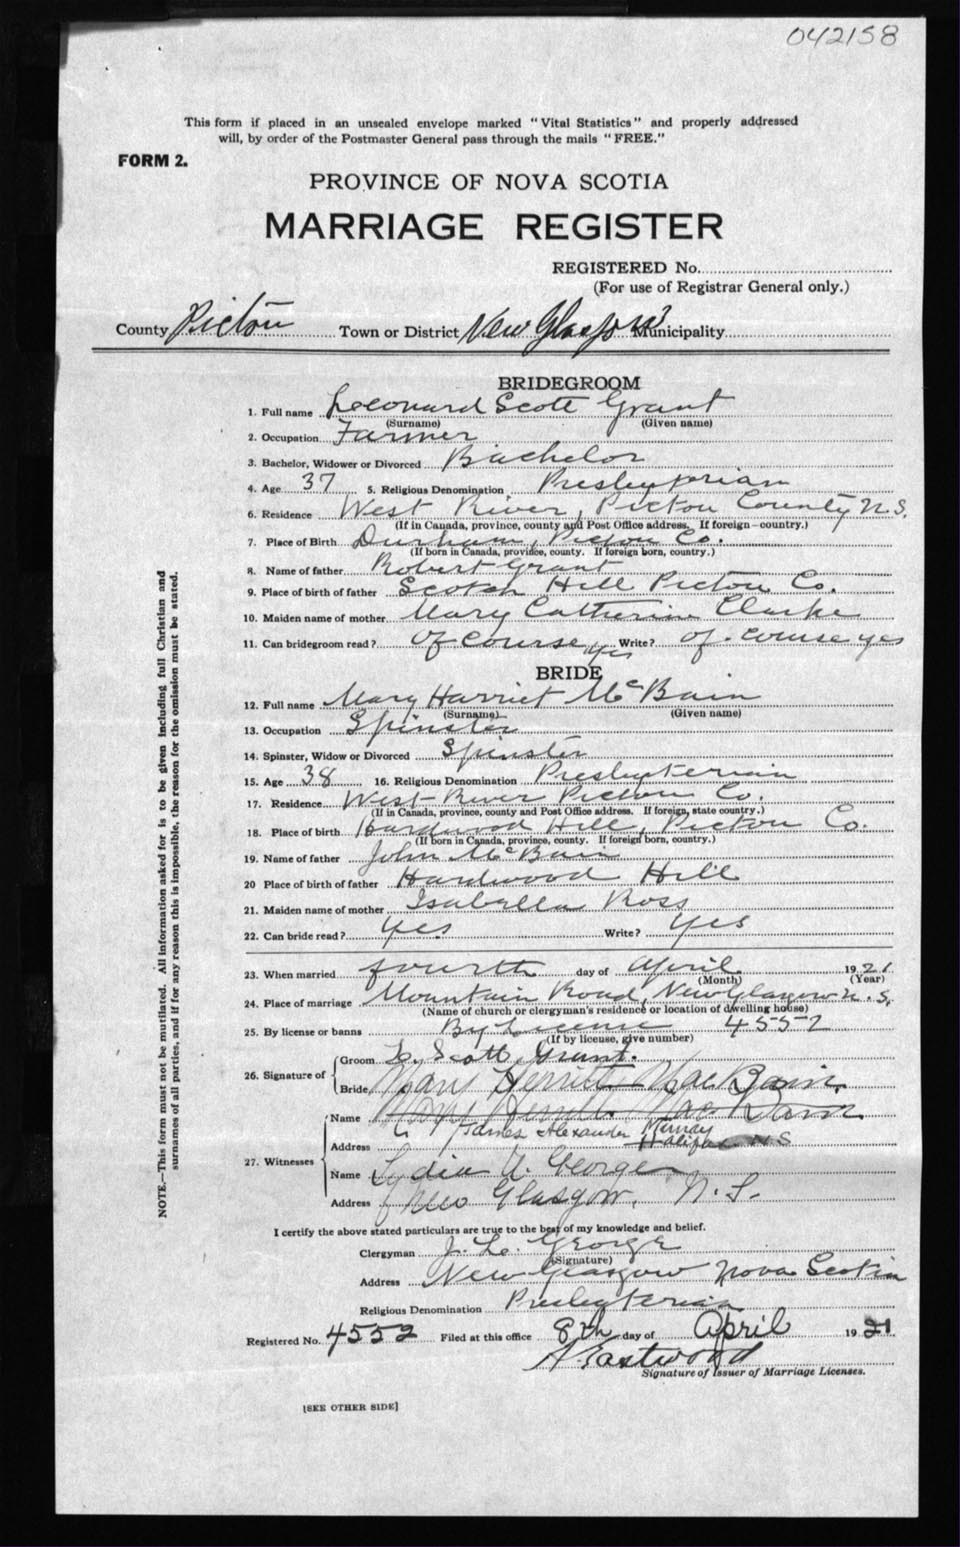 042158
This form if placed in an unsealed envelope marked "Vital Statistics" and properly addressed
will, by order of the Postmaster General pass through the mails "FREE."
FORM 2.
PROVINCE OF NOVA SCOTIA
MARRIAGE REGISTER
REGISTERED No.
(For use of Registrar General only.)
County Pictou Town or District New Glasgow Municipality
BRIDEGROOM
1. Full name Leonard Scott Grant
(Surname) (Given name)
2. Occupation Farmer
3. Bachelor, Widower or Divorced Bachelor
4. Age 37 5. Religious Denomination Presbyterian
6. Residence West River, Pictou County N.S.
(If in Canada, province, county and Post Office address. If foreign—country.)
7. Place of Birth Durham, Pictou Co.
(If born in Canada, province, county. If foreign born, country.)
8. Name of father Robert Grant
9. Place of birth of father Scotch Hill Pictou Co.
10. Maiden name of mother Mary Catherin Clarke
11. Can bridegroom read? Of course yes Write? of course yes
BRIDE
12. Full name Mary Harriet McBain
(Surname) (Given name)
13. Occupation Spinster
14. Spinster, Widow or Divorced Spinster
15. Age 38 16. Religious Denomination Presbyterian
17. Residence West River Pictou Co.
(If in Canada, province, county and Post Office address. If foreign, state country.)
18. Place of birth Hardwood Hill, Pictou Co.
(If born in Canada, province, county. If foreign born, country.)
19. Name of father John McBain
20 Place of birth of father Hardwood Hill
21. Maiden name of mother Isabella Ross
22. Can bride read? Yes Write? Yes
23. When married fourth day of April 1921
(Month) (Year)
24. Place of marriage Mountain Road, New Glasgow N.S.
(Name of church or clergyman's residence or location of dwelling house)
25. By license or banns By License 4552
(If by license, give number)
26. Signature of Groom L. Scott Grant.
Bride Mary Herritt MacBain.
27. Witnesses Name Mary Herritt MacBain
James Alexander Murray
Address Halifax N S
Name Lydia A. George
Address New Glasgow, N. S.
I certify the above stated particulars are true to the best of my knowledge and belief.
Clergyman J. L. George
(Signature)
Address New Glasgow Nova Scotia
Religious Denomination Presbyterian
Registered No. 4552 Filed at this office 8th day of April 1921
A. Eastwood
Signature of Issuer of Marriage Licenses.
[SEE OTHER SIDE]
NOTE.—This form must not be mutilated. All information asked for is to be given including full Christian and
surnames of all parties, and if for any reason this is impossible, the reason for the omission must be stated.